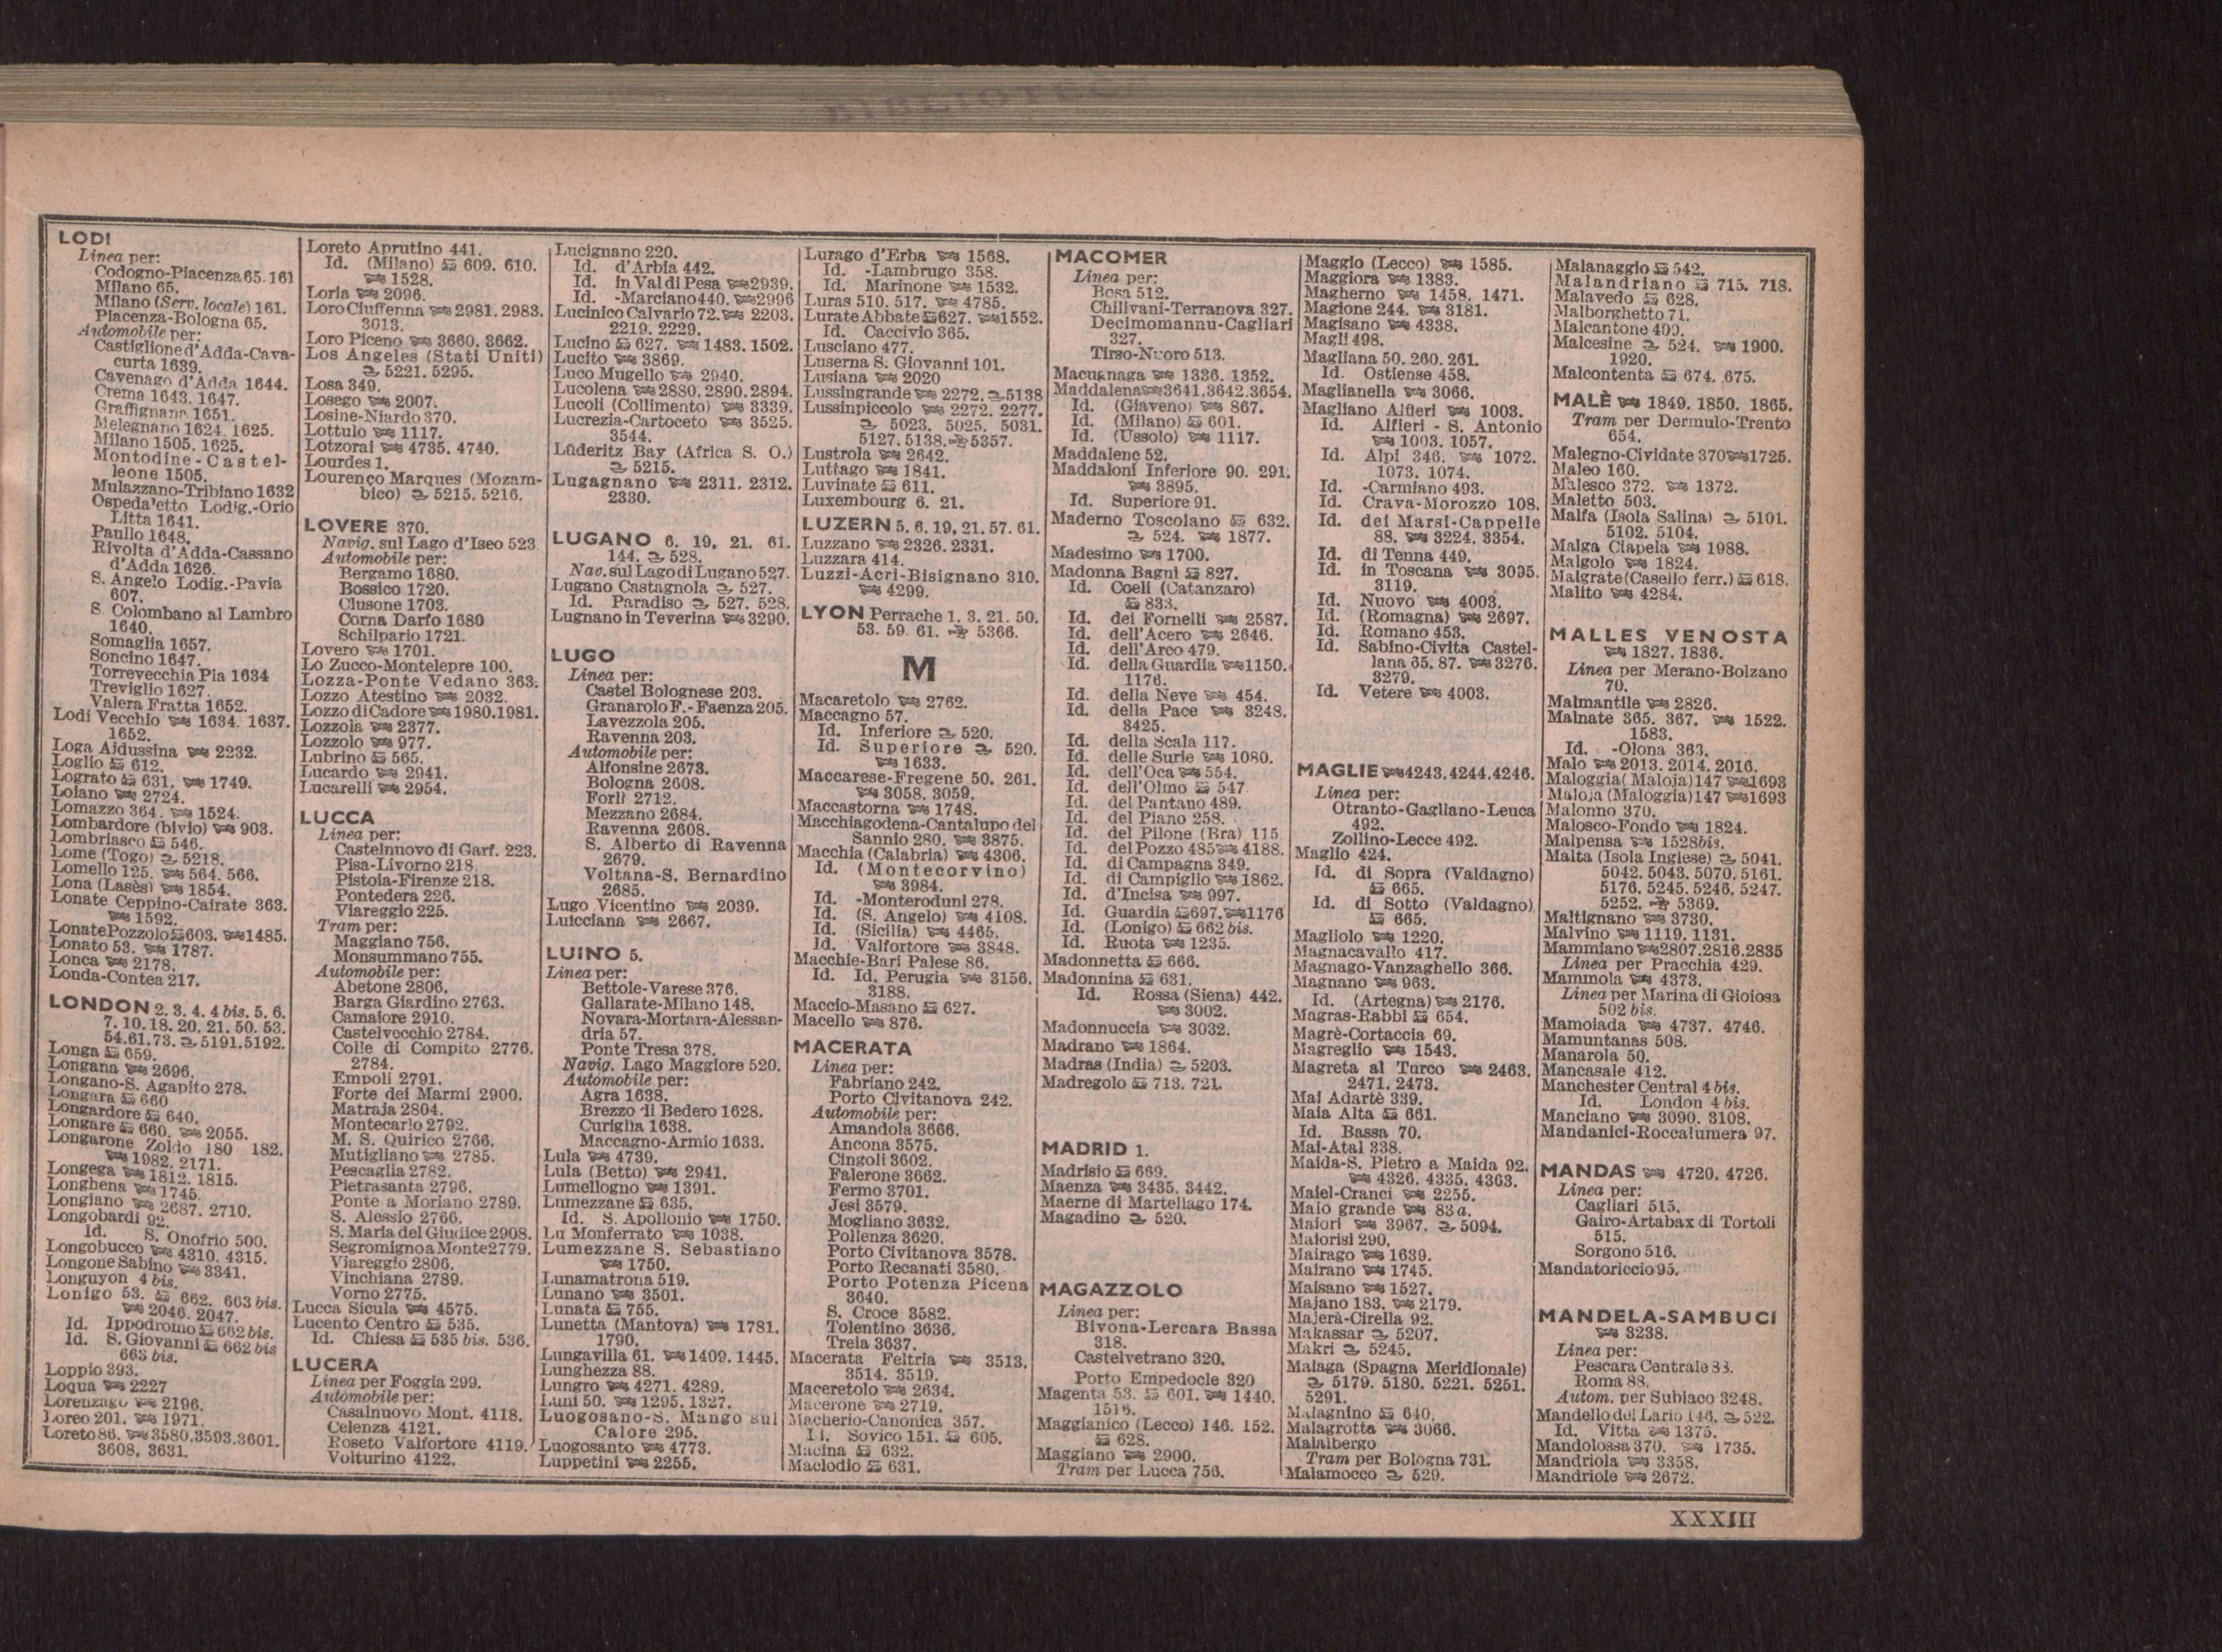 BIBLIOTEC
LODI
Linea per:
Codogno-Piacenza 65. 161
Milano 65.
Milano (Serv. locale) 161.
Piacenza-Bologna 65.
Automobile per:
Castiglione d'Adda-Cava-
curta 1639.
Cavenago d'Adda 1644.
Crema 1643. 1647.
Graffignana 1651.
Melegnano 1624. 1625.
Milano 1505. 1625.
Montodine-Castel-
leone 1505.
Mulazzano-Tribiano 1632
Ospedaletto Lodig.-Orio
Litta 1641.
Paullo 1648.
Rivolta d'Adda-Cassano
d'Adda 1626.
S. Angelo Lodig.-Pavia
607.
S. Colombano al Lambro
1640.
Somaglia 1657.
Soncino 1647.
Torrevecchia Pia 1634
Treviglio 1627.
Valera Fratta 1652.
Lodi Vecchio 1634. 1637.
1652.
Loga Aidussina 2232.
Loglio 612.
Lograto 631. 1749.
Loiano 2724.
Lomazzo 364. 1524.
Lombardore (bivio) 903.
Lombriasco 546.
Lome (Togo) 5218.
Lomello 125. 564. 566.
Lona (Lasès) 1854.
Lonate Ceppino-Cairate 363.
1592.
Lonate Pozzolo 603. 1485.
Lonato 53. 1787.
Lonca 2178.
Londa-Contea 217.
LONDON 2. 3. 4. 4 bis. 5. 6.
7. 10. 18. 20. 21. 50. 53.
54. 61. 73. 5191. 5192.
Longa 659.
Longana 2696.
Longano-S. Agapito 278.
Longara 660
Longardore 640.
Longare 660. 2055.
Longarone Zoldo 180 182.
1982. 2171.
Longega 1812. 1815.
Longhena 1745.
Longiano 2687. 2710.
Longobardi 92.
Id. S. Onofrio 500.
Longobucco 4310. 4315.
Longone Sabino 3341.
Longuyon 4 bis.
Lonigo 53. 662. 663 bis.
2046. 2047.
Id. Ippodromo 662 bis.
Id. S. Giovanni 662 bis
663 bis.
Loppio 393.
Loqua 2227
Lorenzago 2196.
Loreo 201. 1971.
Loreto 86. 3580. 3593. 3601.
3608. 3631.
Loreto Aprutino 441.
Id. (Milano) 609. 610.
1528.
Loria 2096.
Loro Ciuffenna 2981. 2983.
3013.
Loro Piceno 3660. 3662.
Los Angeles (Stati Uniti)
5221. 5295.
Losa 349.
Losego 2007.
Losine-Niardo 370.
Lottulo 1117.
Lotzorai 4735. 4740.
Lourdes 1.
Lourenço Marques (Mozam-
bico) 5215. 5216.
LOVERE 370.
Navig. sul Lago d'Iseo 523
Automobile per:
Bergamo 1680.
Bossico 1720.
Clusone 1703.
Corna Darfo 1680
Schilpario 1721.
Lovero 1701.
Lo Zucco-Montelepre 100.
Lozza-Ponte Vedano 363.
Lozzo Atestino 2032.
Lozzo di Cadore 1980. 1981.
Lozzola 2377.
Lozzolo 977.
Lubrino 565.
Lucardo 2941.
Lucarelli 2954.
LUCCA
Linea per:
Castelnuovo di Garf. 223.
Pisa-Livorno 218.
Pistoia-Firenze 218.
Pontedera 226.
Viareggio 225.
Tram per:
Maggiano 756.
Monsummano 755.
Automobile per:
Abetone 2806.
Barga Giardino 2763.
Camaiore 2910.
Castelvecchio 2784.
Colle di Compito 2776.
2784.
Empoli 2791.
Forte dei Marmi 2900.
Matraja 2804.
Montecarlo 2792.
M. S. Quirico 2766.
Mutigliano 2785.
Pescaglia 2782.
Pietrasanta 2796.
Ponte a Moriano 2789.
S. Alessio 2766.
S. Maria del Giudice 2908.
Segromigno a Monte 2779.
Viareggio 2806.
Vinchiana 2789.
Vorno 2775.
Lucca Sicula 4575.
Lucento Centro 535.
Id. Chiesa 535 bis. 536.
LUCERA
Linea per Foggia 299.
Automobile per:
Casalnuovo Mont. 4118.
Celenza 4121.
Roseto Valfortore 4119.
Volturino 4122.
Lucignano 220.
Id. d'Arbia 442.
Id. in Val di Pesa 2939.
Id. -Marciano 440. 2996
Lucinico Calvario 72. 2203.
2219. 2229.
Lucino 627. 1483. 1502.
Lucito 3869.
Luco Mugello 2940.
Lucolena 2880. 2890. 2894.
Lucoli (Collimento) 3339.
Lucrezia-Cartoceto 3525.
3544.
Lüderitz Bay (Africa S. O.)
5215.
Lugagnano 2311. 2312.
2330.
LUGANO 6. 19. 21. 61.
144. 528.
Nav. sul Lago di Lugano 527.
Lugano Castagnola 527.
Id. Paradiso 527. 528.
Lugnano in Teverina 3290.
LUGO
Linea per:
Castel Bolognese 203.
Granarolo F.-Faenza 205.
Lavezzola 205.
Ravenna 203.
Automobile per:
Alfonsine 2673.
Bologna 2608.
Forlì 2712.
Mezzano 2684.
Ravenna 2608.
S. Alberto di Ravenna
2679.
Voltana-S. Bernardino
2685.
Lugo Vicentino 2039.
Luicciana 2667.
LUINO 5.
Linea per:
Bettole-Varese 376.
Gallarate-Milano 148.
Novara-Mortara-Alessan-
dria 57.
Ponte Tresa 378.
Navig. Lago Maggiore 520.
Automobile per:
Agra 1638.
Brezzo di Bedero 1628.
Curiglia 1638.
Maccagno-Armio 1633.
Lula 4739.
Lula (Betto) 2941.
Lumellogno 1391.
Lumezzane 635.
Id. S. Apollonio 1750.
Lu Monferrato 1038.
Lumezzane S. Sebastiano
1750.
Lunamatrona 519.
Lunano 3501.
Lunata 755.
Lunetta (Mantova) 1781.
1790.
Lungavilla 61. 1409. 1445.
Lunghezza 88.
Lungro 4271. 4289.
Luni 50. 1295. 1327.
Luogosano-S. Mango sul
Calore 295.
Luogosanto 4773.
Luppetini 2255.
Lurago d'Erba 1568.
Id. -Lambrugo 358.
Id. Marinone 1532.
Luras 510. 517. 4785.
Lurate Abbate 627. 1552.
Id. Caccivio 365.
Lusciano 477.
Luserna S. Giovanni 101.
Lusiana 2020
Lussingrande 2272. 5138
Lussinpiccolo 2272. 2277.
5023. 5025. 5031.
5127. 5138. 5357.
Lustrola 2642.
Luttago 1841.
Luvinate 611.
Luxembourg 6. 21.
LUZERN 5. 6. 19. 21. 57. 61.
Luzzano 2326. 2331.
Luzzara 414.
Luzzi-Acri-Bisignano 310.
4299.
LYON Perrache 1. 3. 21. 50.
53. 59. 61. 5366.
M
Macaretolo 2762.
Maccagno 57.
Id. Inferiore 520.
Id. Superiore 520.
1633.
Maccarese-Fregene 50. 261.
3058. 3059.
Maccastorna 1748.
Macchiagodena-Cantalupo del
Sannio 280. 3875.
Macchia (Calabria) 4306.
Id. (Montecorvino)
3984.
Id. -Monteroduni 278.
Id. (S. Angelo) 4108.
Id. (Sicilia) 4465.
Id. Valfortore 3848.
Macchie-Bari Palese 86.
Id. Id. Perugia 3156.
3188.
Maccio-Masano 627.
Macello 876.
MACERATA
Linea per:
Fabriano 242.
Porto Civitanova 242.
Automobile per:
Amandola 3666.
Ancona 3575.
Cingoli 3602.
Falerone 3662.
Fermo 3701.
Jesi 3579.
Mogliano 3632.
Pollenza 3620.
Porto Civitanova 3578.
Porto Recanati 3580.
Porto Potenza Picena
3640.
S. Croce 3582.
Tolentino 3636.
Treia 3637.
Macerata Feltria 3513.
3514. 3519.
Maceretolo 2634.
Macerone 2719.
Macherio-Canonica 357.
Id. Sovico 151. 605.
Macina 632.
Maclodio 631.
MACOMER
Linea per:
Bosa 512.
Chilivani-Terranova 327.
Decimomannu-Cagliari
327.
Tirso-Nuoro 513.
Macugnaga 1336. 1352.
Maddalena 3641. 3642. 3654.
Id. (Giaveno) 867.
Id. (Milano) 601.
Id. (Ussolo) 1117.
Maddalene 52.
Maddaloni Inferiore 90. 291.
3895.
Id. Superiore 91.
Maderno Toscolano 632.
524. 1877.
Madesimo 1700.
Madonna Bagni 827.
Id. Coeli (Catanzaro)
833.
Id. dei Fornelli 2587.
Id. dell'Acero 2646.
Id. dell'Arco 479.
Id. della Guardia 1150.
1176.
Id. della Neve 454.
Id. della Pace 3248.
3425.
Id. della Scala 117.
Id. delle Surie 1080.
Id. dell'Oca 554.
Id. dell'Olmo 547
Id. del Pantano 489.
Id. del Piano 258.
Id. del Pilone (Bra) 115
Id. del Pozzo 485 4188.
Id. di Campagna 349.
Id. di Campiglio 1862.
Id. d'Incisa 997.
Id. Guardia 697. 1176
Id. (Lonigo) 662 bis.
Id. Ruota 1235.
Madonnetta 666.
Madonnina 631.
Id. Rossa (Siena) 442.
3002.
Madonnuccia 3032.
Madrano 1864.
Madras (India) 5203.
Madregolo 713. 721.
MADRID 1.
Madrisio 669.
Maenza 3435. 3442.
Maerne di Martellago 174.
Magadino 520.
MAGAZZOLO
Linea per:
Bivona-Lercara Bassa
318.
Castelvetrano 320.
Porto Empedocle 320
Magenta 53. 601. 1440.
1516.
Maggianico (Lecco) 146. 152.
628.
Maggiano 2900.
Tram per Lucca 756.
Maggio (Lecco) 1585.
Maggiora 1383.
Magherno 1458. 1471.
Magione 244. 3181.
Magisano 4338.
Magli 498.
Magliana 50. 260. 261.
Id. Ostiense 458.
Maglianella 3066.
Magliano Alfieri 1003.
Id. Alfieri - S. Antonio
1003. 1057.
Id. Alpi 346. 1072.
1073. 1074.
Id. -Carmiano 493.
Id. Crava-Morozzo 108.
Id. dei Marsi-Cappelle
88. 3224. 3354.
Id. di Tenna 449.
Id. in Toscana 3095.
3119.
Id. Nuovo 4003.
Id. (Romagna) 2697.
Id. Romano 453.
Id. Sabino-Civita Castel-
lana 35. 87. 3276.
3279.
Id. Vetere 4003.
MAGLIE 4243. 4244. 4246.
Linea per:
Otranto-Gagliano-Leuca
492.
Zollino-Lecce 492.
Maglio 424.
Id. di Sopra (Valdagno)
665.
Id. di Sotto (Valdagno)
665.
Magliolo 1220.
Magnacavallo 417.
Magnago-Vanzaghello 366.
Magnano 963.
Id. (Artegna) 2176.
Magras-Rabbi 654.
Magrè-Cortaccia 69.
Magreglio 1543.
Magreta al Turco 2463.
2471. 2473.
Mai Adartè 339.
Maia Alta 661.
Id. Bassa 70.
Mai-Atal 338.
Maida-S. Pietro a Maida 92.
4326. 4335. 4363.
Maiel-Cranci 2255.
Maio grande 83 a.
Maiori 3967. 5094.
Maiorisi 290.
Mairago 1639.
Mairano 1745.
Maisano 1527.
Majano 183. 2179.
Majerà-Cirella 92.
Makassar 5207.
Makri 5245.
Malaga (Spagna Meridionale)
5179. 5180. 5221. 5251.
5291.
Malagnino 640.
Malagrotta 3066.
Malalbergo
Tram per Bologna 731.
Malamocco 529.
Malanaggio 542.
Malandriano 715. 718.
Malavedo 628.
Malborghetto 71.
Malcantone 400.
Malcesine 524. 1900.
1920.
Malcontenta 674. 675.
MALÈ 1849. 1850. 1865.
Tram per Dermulo-Trento
654.
Malegno-Cividate 370 1725.
Maleo 160.
Malesco 372. 1372.
Maletto 503.
Malfa (Isola Salina) 5101.
5102. 5104.
Malga Ciapela 1988.
Malgolo 1824.
Malgrate (Casello ferr.) 618.
Malito 4284.
MALLES VENOSTA
1827. 1836.
Linea per Merano-Bolzano
70.
Malmantile 2826.
Malnate 365. 367. 1522.
1583.
Id. -Olona 363.
Malo 2013. 2014. 2016.
Maloggia (Maloja) 147 1693
Maloja (Maloggia) 147 1693
Malonno 370.
Malosco-Fondo 1824.
Malpensa 1528bis.
Malta (Isola Inglese) 5041.
5042. 5043. 5070. 5161.
5176. 5245. 5246. 5247.
5252. 5369.
Maltignano 3730.
Malvino 1119. 1131.
Mammiano 2807. 2816. 2835
Linea per Pracchia 429.
Mammola 4373.
Linea per Marina di Gioiosa
502 bis.
Mamoiada 4737. 4746.
Mamuntanas 508.
Manarola 50.
Mancasale 412.
Manchester Central 4 bis.
Id. London 4 bis.
Manciano 3090. 3108.
Mandanici-Roccalumera 97.
MANDAS 4720. 4726.
Linea per:
Cagliari 515.
Gairo-Artabax di Tortoli
515.
Sorgono 516.
Mandatoriccio 95.
MANDELA-SAMBUCI
3238.
Linea per:
Pescara Centrale 88.
Roma 88.
Autom. per Subiaco 3248.
Mandello del Lario 146. 522.
Id. Vitta 1375.
Mandolossa 370. 1735.
Mandriola 3358.
Mandriole 2672.
XXXIII